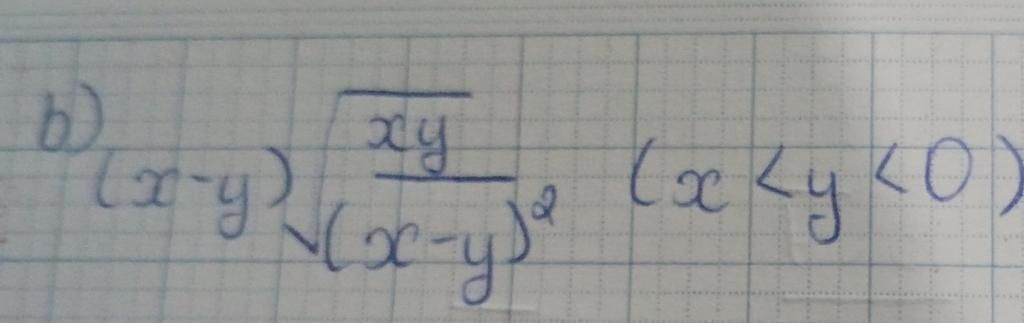 b) (x-y)√(xy/(x-y)²) (x<y<0)